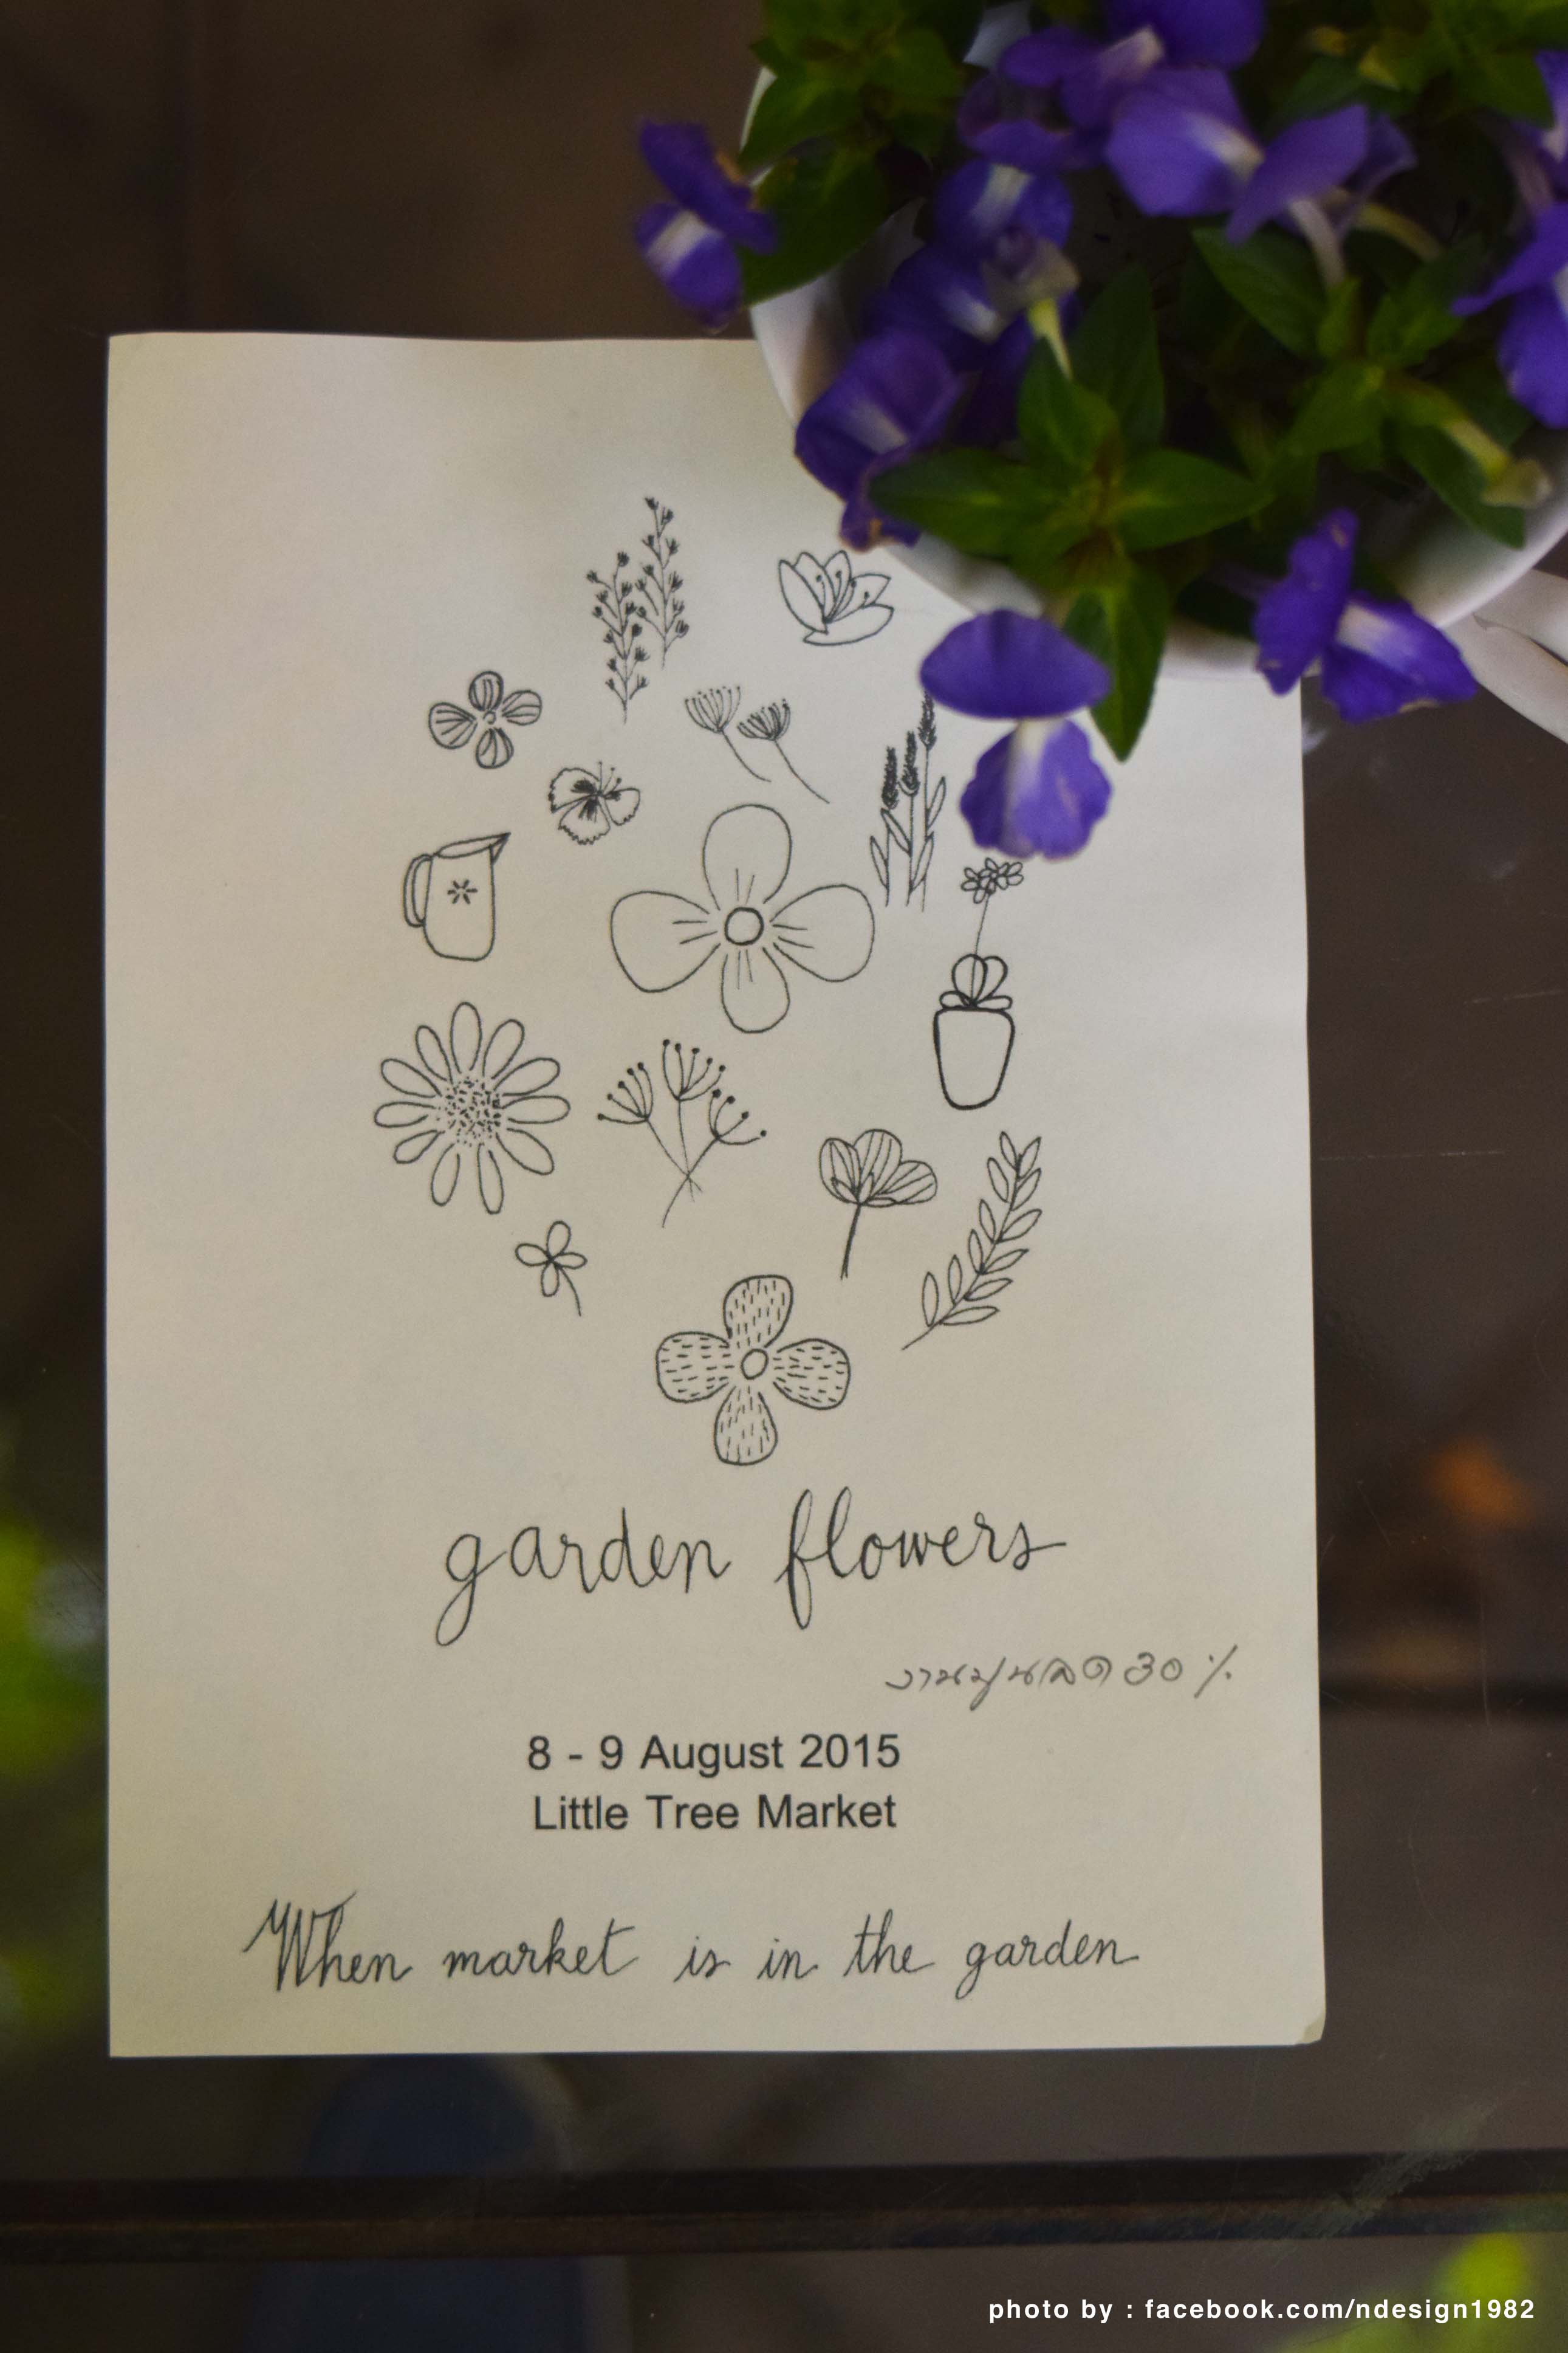 garden flowers
งานปูนลด 30 %
8 - 9 August 2015
Little Tree Market
When market is in the garden
photo by : facebook.com/ndesign1982